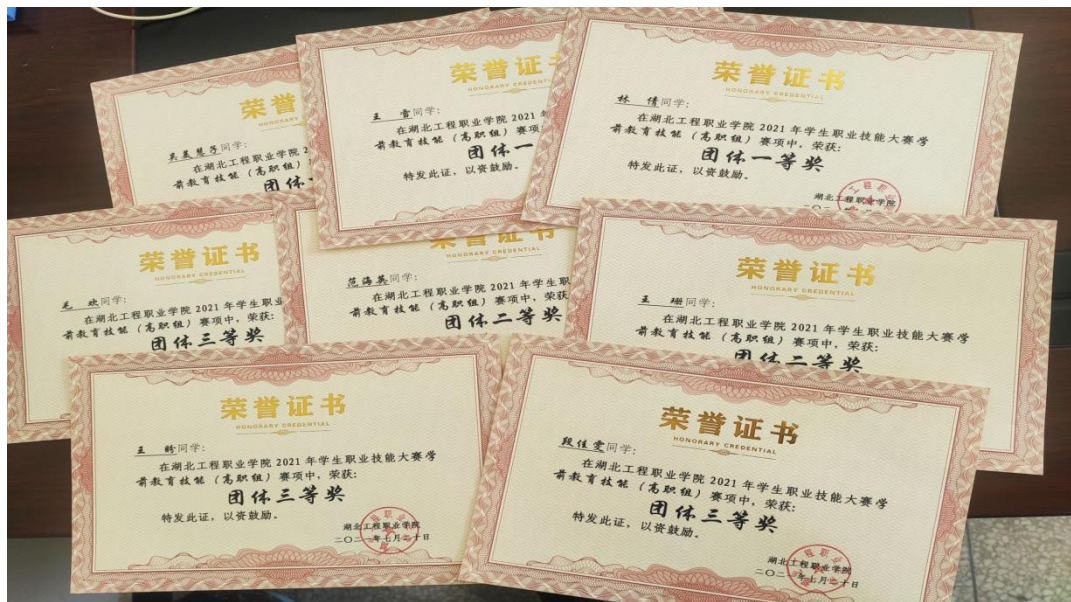 荣誉
吴美慧子同学:
在湖北工程职业学院 2
前教育技能（高职组）
团体
荣誉证
HONORARY CREDENTI
王 雪同学:
在湖北工程职业学院 2021
前教育技能（高职组）赛项
团体一
特发此证，以资鼓励。
荣誉证书
HONORARY CREDENTIAL
林 倩同学:
在湖北工程职业学院 2021 年学生职业技能大赛学
前教育技能（高职组）赛项中，荣获:
团体一等奖
特发此证，以资鼓励。
湖北工程职业学院
荣誉证书
HONORARY CREDENTIAL
毛 欢同学:
在湖北工程职业学院 2021 年学生职业
前教育技能（高职组）赛项中，荣获:
团体三等奖
荣誉证书
HONORARY CREDENTIAL
范海英同学:
在湖北工程职业学院 2021 年学生职
前教育技能（高职组）赛项中，荣获
团体二等奖
荣誉证书
HONORARY CREDENTIAL
王 珊同学:
在湖北工程职业学院 2021 年学生职业技能大赛学
前教育技能（高职组）赛项中，荣获:
团体二等奖
荣誉证书
HONORARY CREDENTIAL
王 盼同学:
在湖北工程职业学院 2021 年学生职业技能大赛学
前教育技能（高职组）赛项中，荣获:
团体三等奖
特发此证，以资鼓励。
湖北工程职业学院
二〇二一年七月二十日
荣誉证书
HONORARY CREDENTIAL
段佳雯同学:
在湖北工程职业学院 2021 年学生职业技能大赛学
前教育技能（高职组）赛项中，荣获:
团体三等奖
特发此证，以资鼓励。
湖北工程职业学院
二〇二一年七月二十日